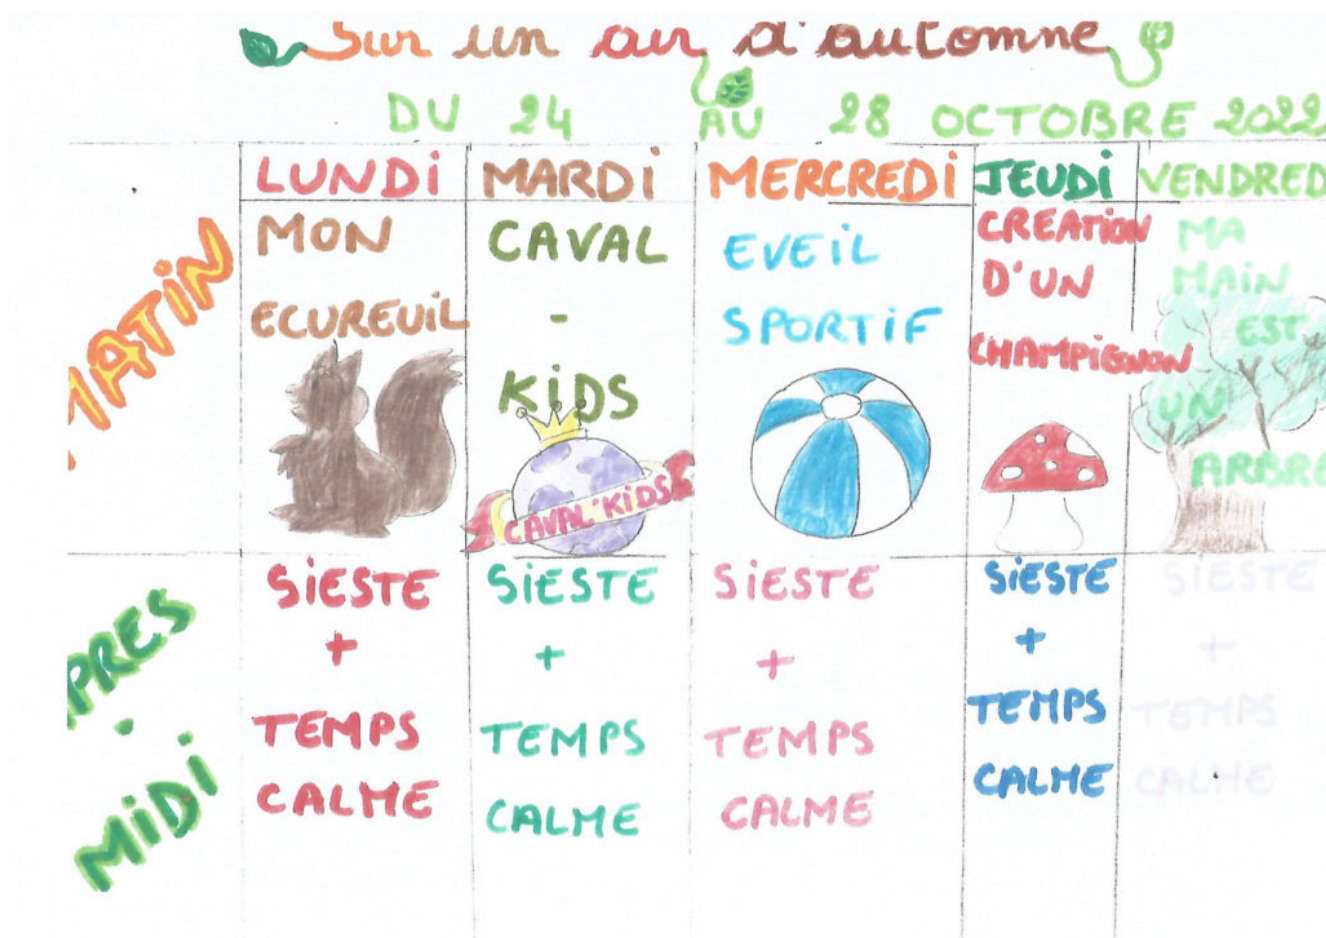 Sur un air d'automne
DU 24 AU 28 OCTOBRE 2022
LUNDi MARDi MERCREDi JEUDi VENDRED
MATiN
MON
ECUREUiL
CAVAL
-
KiDS
CAVAL'KiDS
EVEiL
SPORTiF
CREATiON
D'UN
CHAMPiGNON
MA
MAiN
EST
UN
ARBRE
PRES
-
MiDi
SiESTE
+
TEMPS
CALME
SiESTE
+
TEMPS
CALME
SiESTE
+
TEMPS
CALME
SiESTE
+
TEMPS
CALME
SiESTE
+
TEMPS
CALME